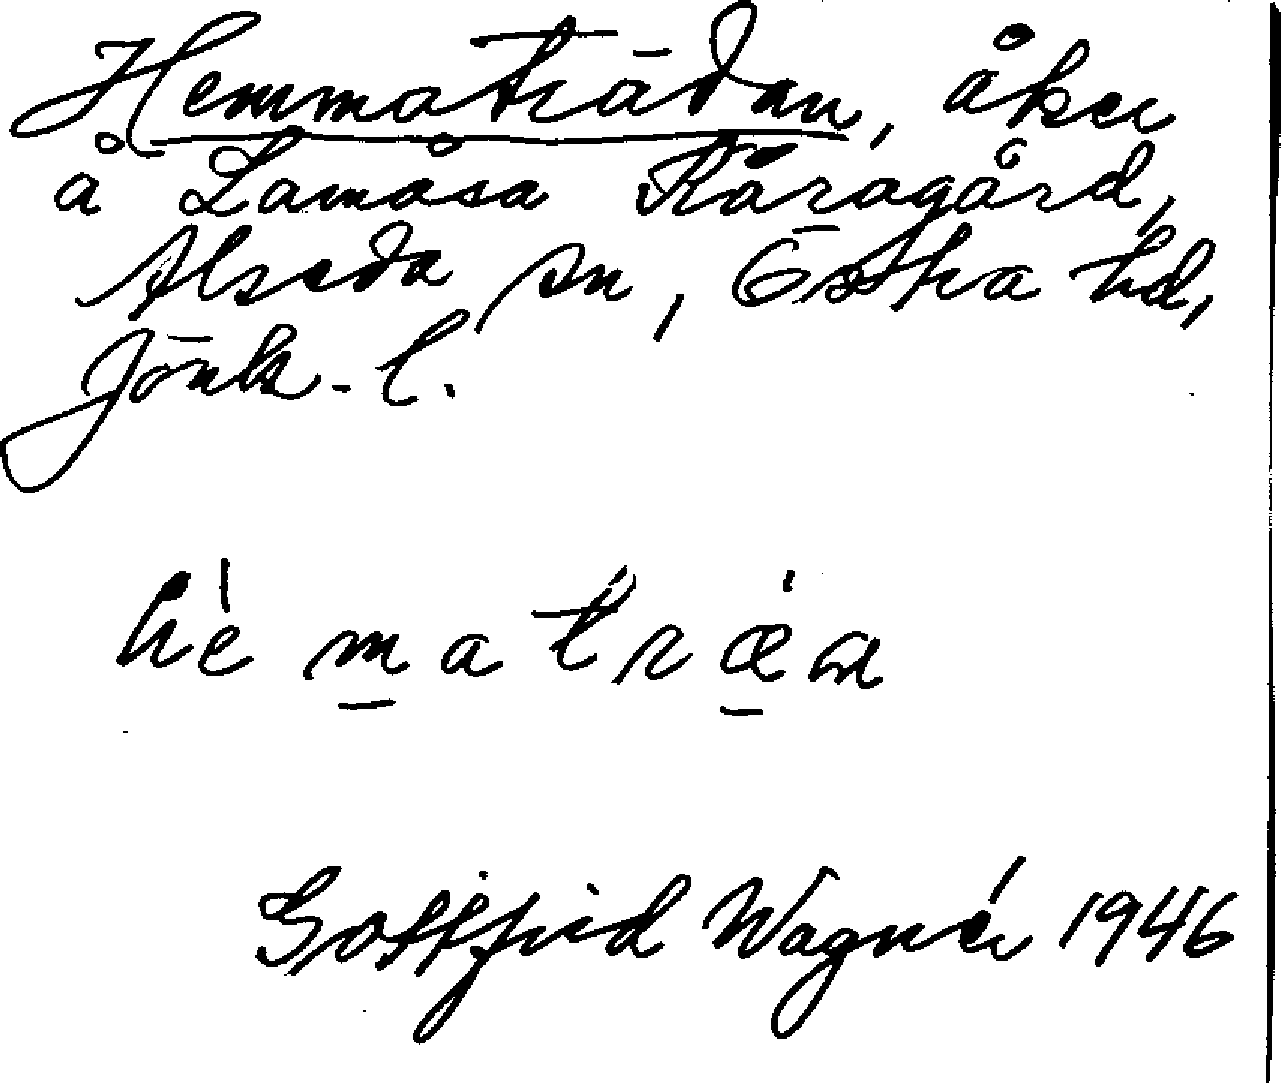 Hemmaträdan, åker
å Lamåsa Råragård,
Alseda sn, Östra hd,
Jönk. l.
hèmatræ̀a
Gottfrid Wagnér 1946